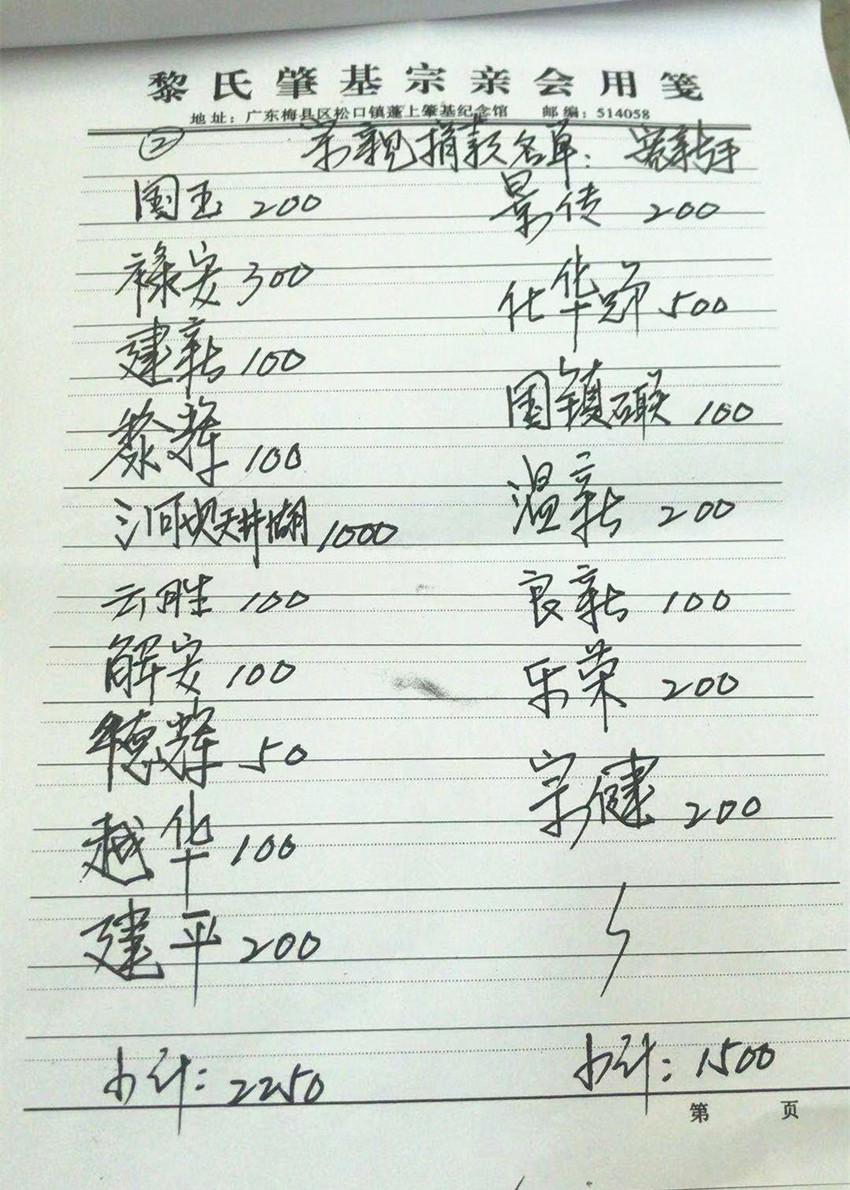 黎氏肇基宗亲会用笺
地址：广东梅县区松口镇蓬上肇基纪念馆 邮编：514058
② 宗亲捐款名单：
国玉 200 景传 200
禄安 300 化华 500
建新 100 国镇 联 100
黎辉 100 温新 200
河坝天井湖 1000
云胜 100 良新 100
解安 100 乐荣 200
德辉 50 宗健 200
越华 100
建平 200
小计：2250 小计：1500
第 页